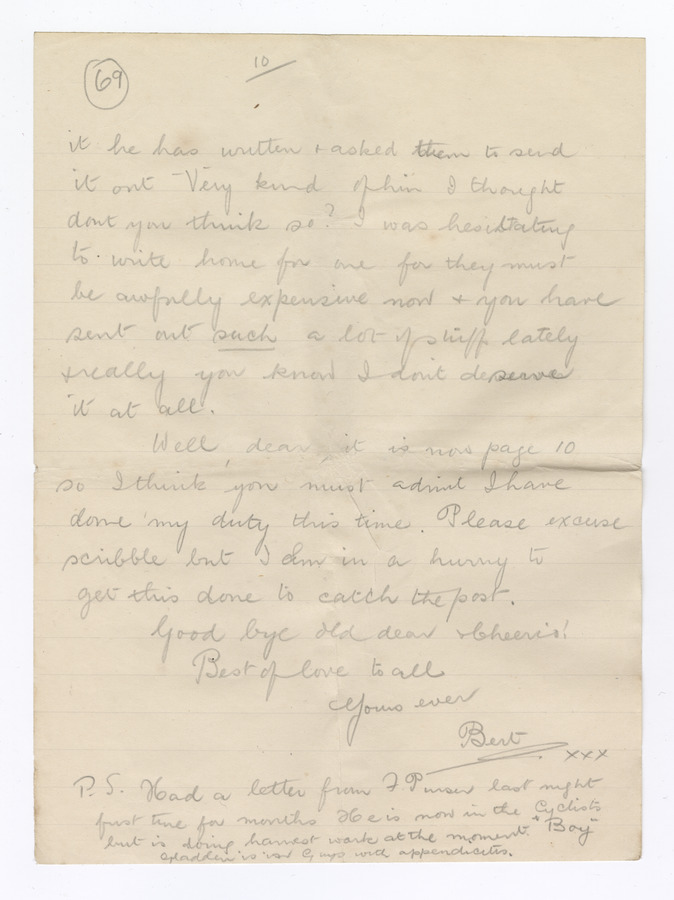 69
10
it he has written + asked them to send
it out Very kind of him I thought
dont you think so? I was hesitating
to write home for one for they must
be awfully expensive now + you have
sent out such a lot of stuff lately
+ really you know I don't deserve
it at all.
Well, dear, it is now page 10
so I think you must admit I have
done my duty this time. Please excuse
scribble but I am in a hurry to
get this done to catch the post.
Good bye old dear + Cheerio!
Best of love to all
Yours ever
Bert
xxx
P.S. Had a letter from F. Purser last night
first time for months He is now in the Cyclists
but is doing harvest work at the moment. "Boy"
is in Guys with appendicitis.